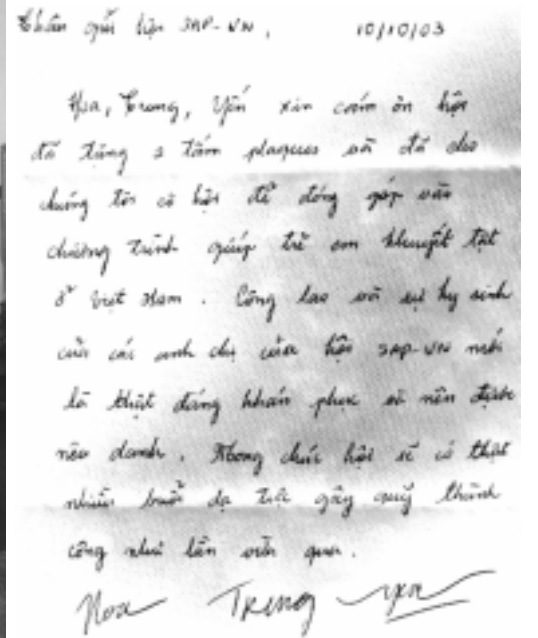 Thân gửi hội SAP-VN, 10/10/03
Hoa, Trung, Yến xin cám ơn hội
đã tặng 2 tấm plaques và đã cho
chúng tôi cơ hội để đóng góp vào
chương trình giúp trẻ em khuyết tật
ở Việt Nam. Công lao và sự hy sinh
của các anh chị của hội SAP-VN mới
là thật đáng khán phục và nên được
nêu danh. Mong chúc hội sẽ có thật
nhiều buổi dạ tiệc gây quỹ thành
công như lần vừa qua.
Hoa Trung Yến